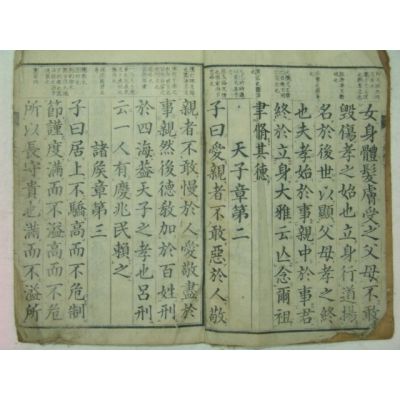 女身體髮膚受之父母不敢
毁傷孝之始也立身行道揚
名於後世以顯父母孝之終
也夫孝始於事親中於事君
終於立身大雅云亾念爾祖
聿脩其德
天子章第二
子曰愛親者不敢惡於人敬
親者不敢慢於人愛敬盡於
事親然後德敎加於百姓刑
於四海葢天子之孝也呂刑
云一人有慶兆民賴之
諸矦章第三
子曰居上不驕高而不危制
節謹度滿而不溢高而不危
所以長守貴也滿而不溢所